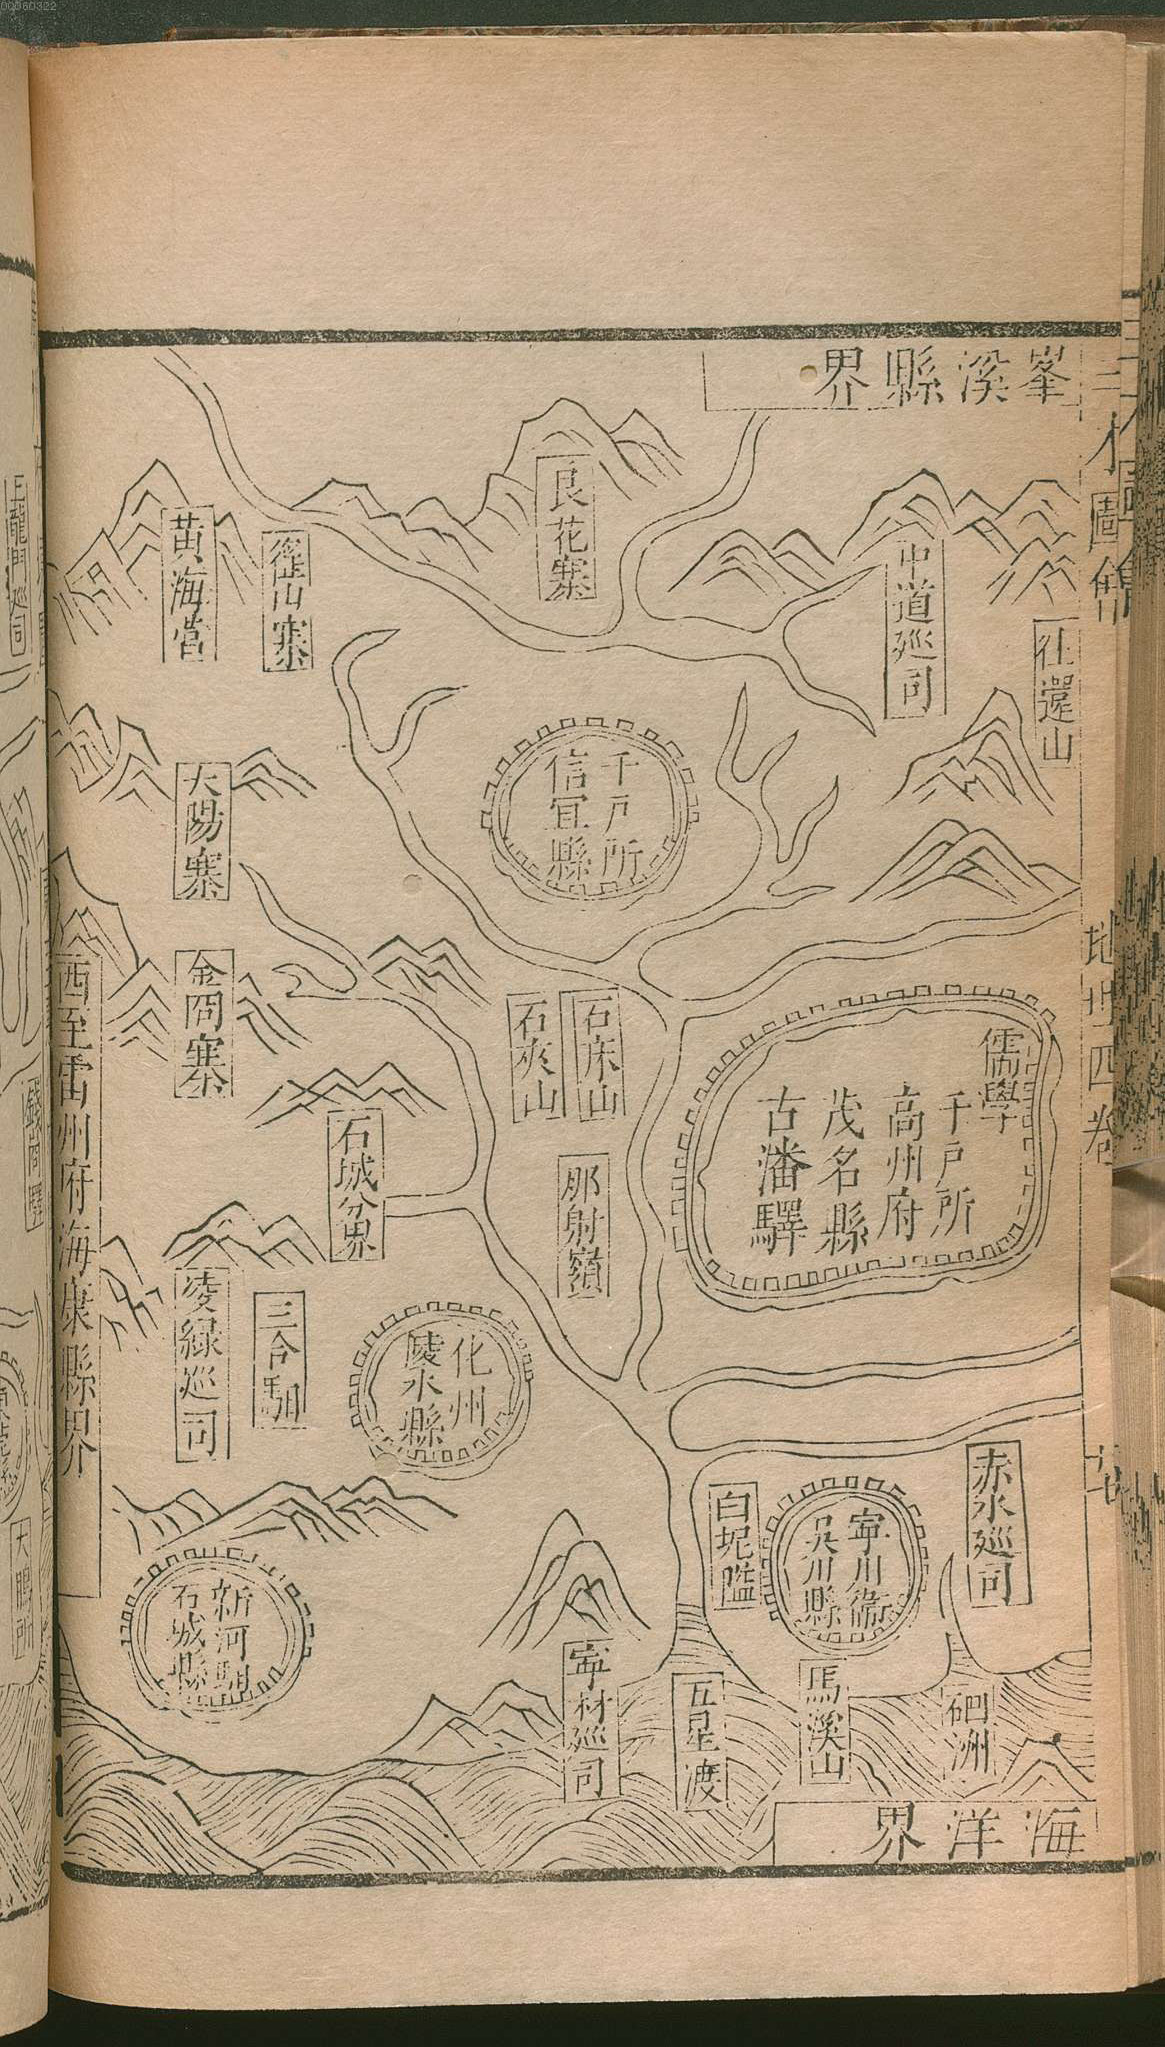 00060322
岑溪縣界
中道巡司
往還山
良花寨
黃海營
大陽寨
千戶所
信宜縣
金岡寨
石床山
石夾山
儒學
千戶所
高州府
茂名縣
古潘驛
那射嶺
石城分界
西至雷州府海康縣界
三合驛
凌綠巡司
化州
陵水縣
赤水巡司
寧川衞
吳川縣
白坭隘
新河驛
石城縣
寧村巡司
五星渡
馬溪山
硇洲
海洋界
地廿四卷